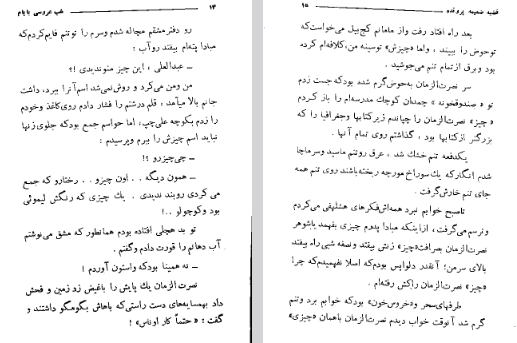 ۱۴ شب عروسی بابام
رو دفتر مشقم مچاله شدم وسرم را تو تنم قایم کردم که
مبادا پته‌ام بیفتد روآب :
ــ عبدالعلی ، این چیز منو ندیدی ؟!
من ومن می‌کرد و روش نمی‌شد اسم آنرا ببرد، داشت
جانم بالا می‌آمد ، قلم درشتم را فشار دادم روی کاغذ وخودم
را زدم بکوچه علی‌چپ، اما حواسم جمع بود که جلوی زنها
نباید اسم چیزش را ببرم وپرسیدم :
ــ چی‌چیزرو ؟!
ــ همون دیگه . . اون چیزو . . رختارو که جمع
می کردی روبند ندیدی . یك چیزی که رنگش لیموئی
بود وکوچولو . .!
تو بد هچلی افتاده بودم همانطور که مشق می‌نوشتم
آب دهانم را قورت دادم وگفتم .
ــ نه همینا بودکه واستون آوردم !
نصرت الزمان یك پایش را باغیض زد زمین و فحش
داد بهمسایه‌های دست راستی که باهاش بگومگو داشتند و
گفت : « حتماً کار اوناس» !
قضیه ضمیمه پرونده ۱۵
بعد راه افتاد رفت واز مامانم کج‌بیل می‌خواست که
توحوض را ببیند ، واما «چیزش» توسینه من، کلافه‌ام کرده
بود وبرق از تمام تنم می‌جوشید .
سر نصرت‌الزمان به‌حوض گرم شده بودکه جست زدم
تو « صندوقخونه » چمدان کوچك مدرسه‌ام را باز کردم
«چیز» نصرت‌الزمان را چپاندم زیرکتابها وجغرافیا را که
بزرگتر ازکتابها بود ، گذاشتم روی تمام آنها .
یکدفعه تنم خنك شد ، عرق روتنم ماسید وسرما چا
شدم انگارکه یك‌سوراخ مورچه ریخته‌باشند روی تنم همه
جای تنم خارش گرفت .
تاصبح خوابم نبرد همه‌اش فکرهای هشلهفی می‌کردم
وترسم می‌گرفت ، ازاینکه مبادا پدرم چیزی بفهمد باشوهر
نصرت الزمان بصرافت«چیز» زنش بیفتد ونصفه شبی راه بیفتد
بالای سرمن؛ آنقدر دلواپس بودکه اصلا نفهمیدم که چرا
«چیز» نصرت الزمان راکش رفته‌ام .
طرفهای سحر و«خروس‌خون» بودکه خوابم برد وتنم
گرم شد آنوقت خواب دیدم نصرت‌الزمان باهمان «چیزی»